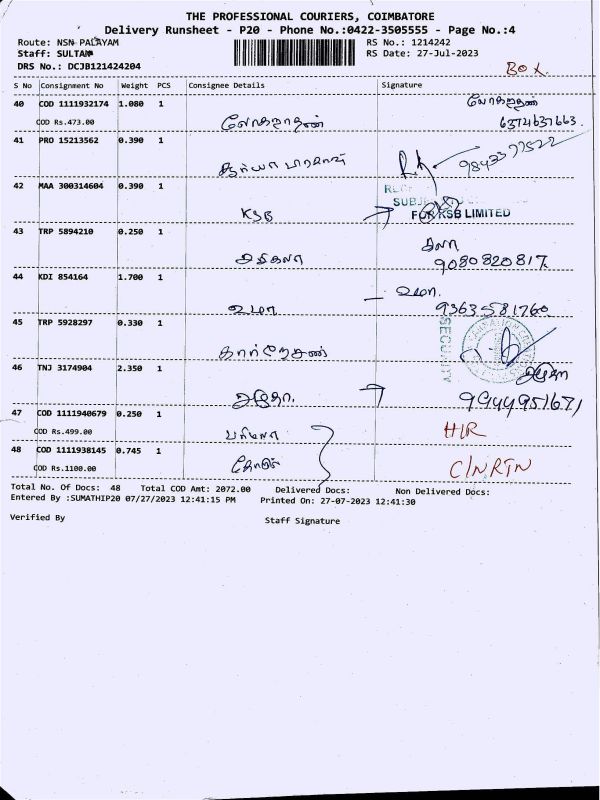 THE PROFESSIONAL COURIERS, COIMBATORE
Delivery Runsheet - P20 - Phone No.:0422-3505555 - Page No.:4
Route: NSN PALAYAM RS No.: 1214242
Staff: SULTAN RS Date: 27-Jul-2023
DRS No.: DCJB121424204
BOX.
S No Consignment No Weight PCS Consignee Details Signature
40 COD 1111932174 1.080 1
COD Rs.473.00 லோகநாதன் 6374637663.
41 PRO 15213562 0.390 1
RK 9843377522
42 MAA 300314604 0.390 1
KSB FOR KSB LIMITED
43 TRP 5894210 0.250 1 கலா
சசிகலா 9080820817
44 KDI 854164 1.700 1 உமா.
உமா 9363581760
45 TRP 5928297 0.330 1 SECURITY
46 TNJ 3174904 2.350 1
9944951671
47 COD 1111940679 0.250 1
COD Rs.499.00 H/R
48 COD 1111938145 0.745 1
COD Rs.1100.00 C/N RTN
Total No. Of Docs: 48 Total COD Amt: 2072.00 Delivered Docs: Non Delivered Docs:
Entered By :SUMATHIP20 07/27/2023 12:41:15 PM Printed On: 27-07-2023 12:41:30
Verified By Staff Signature